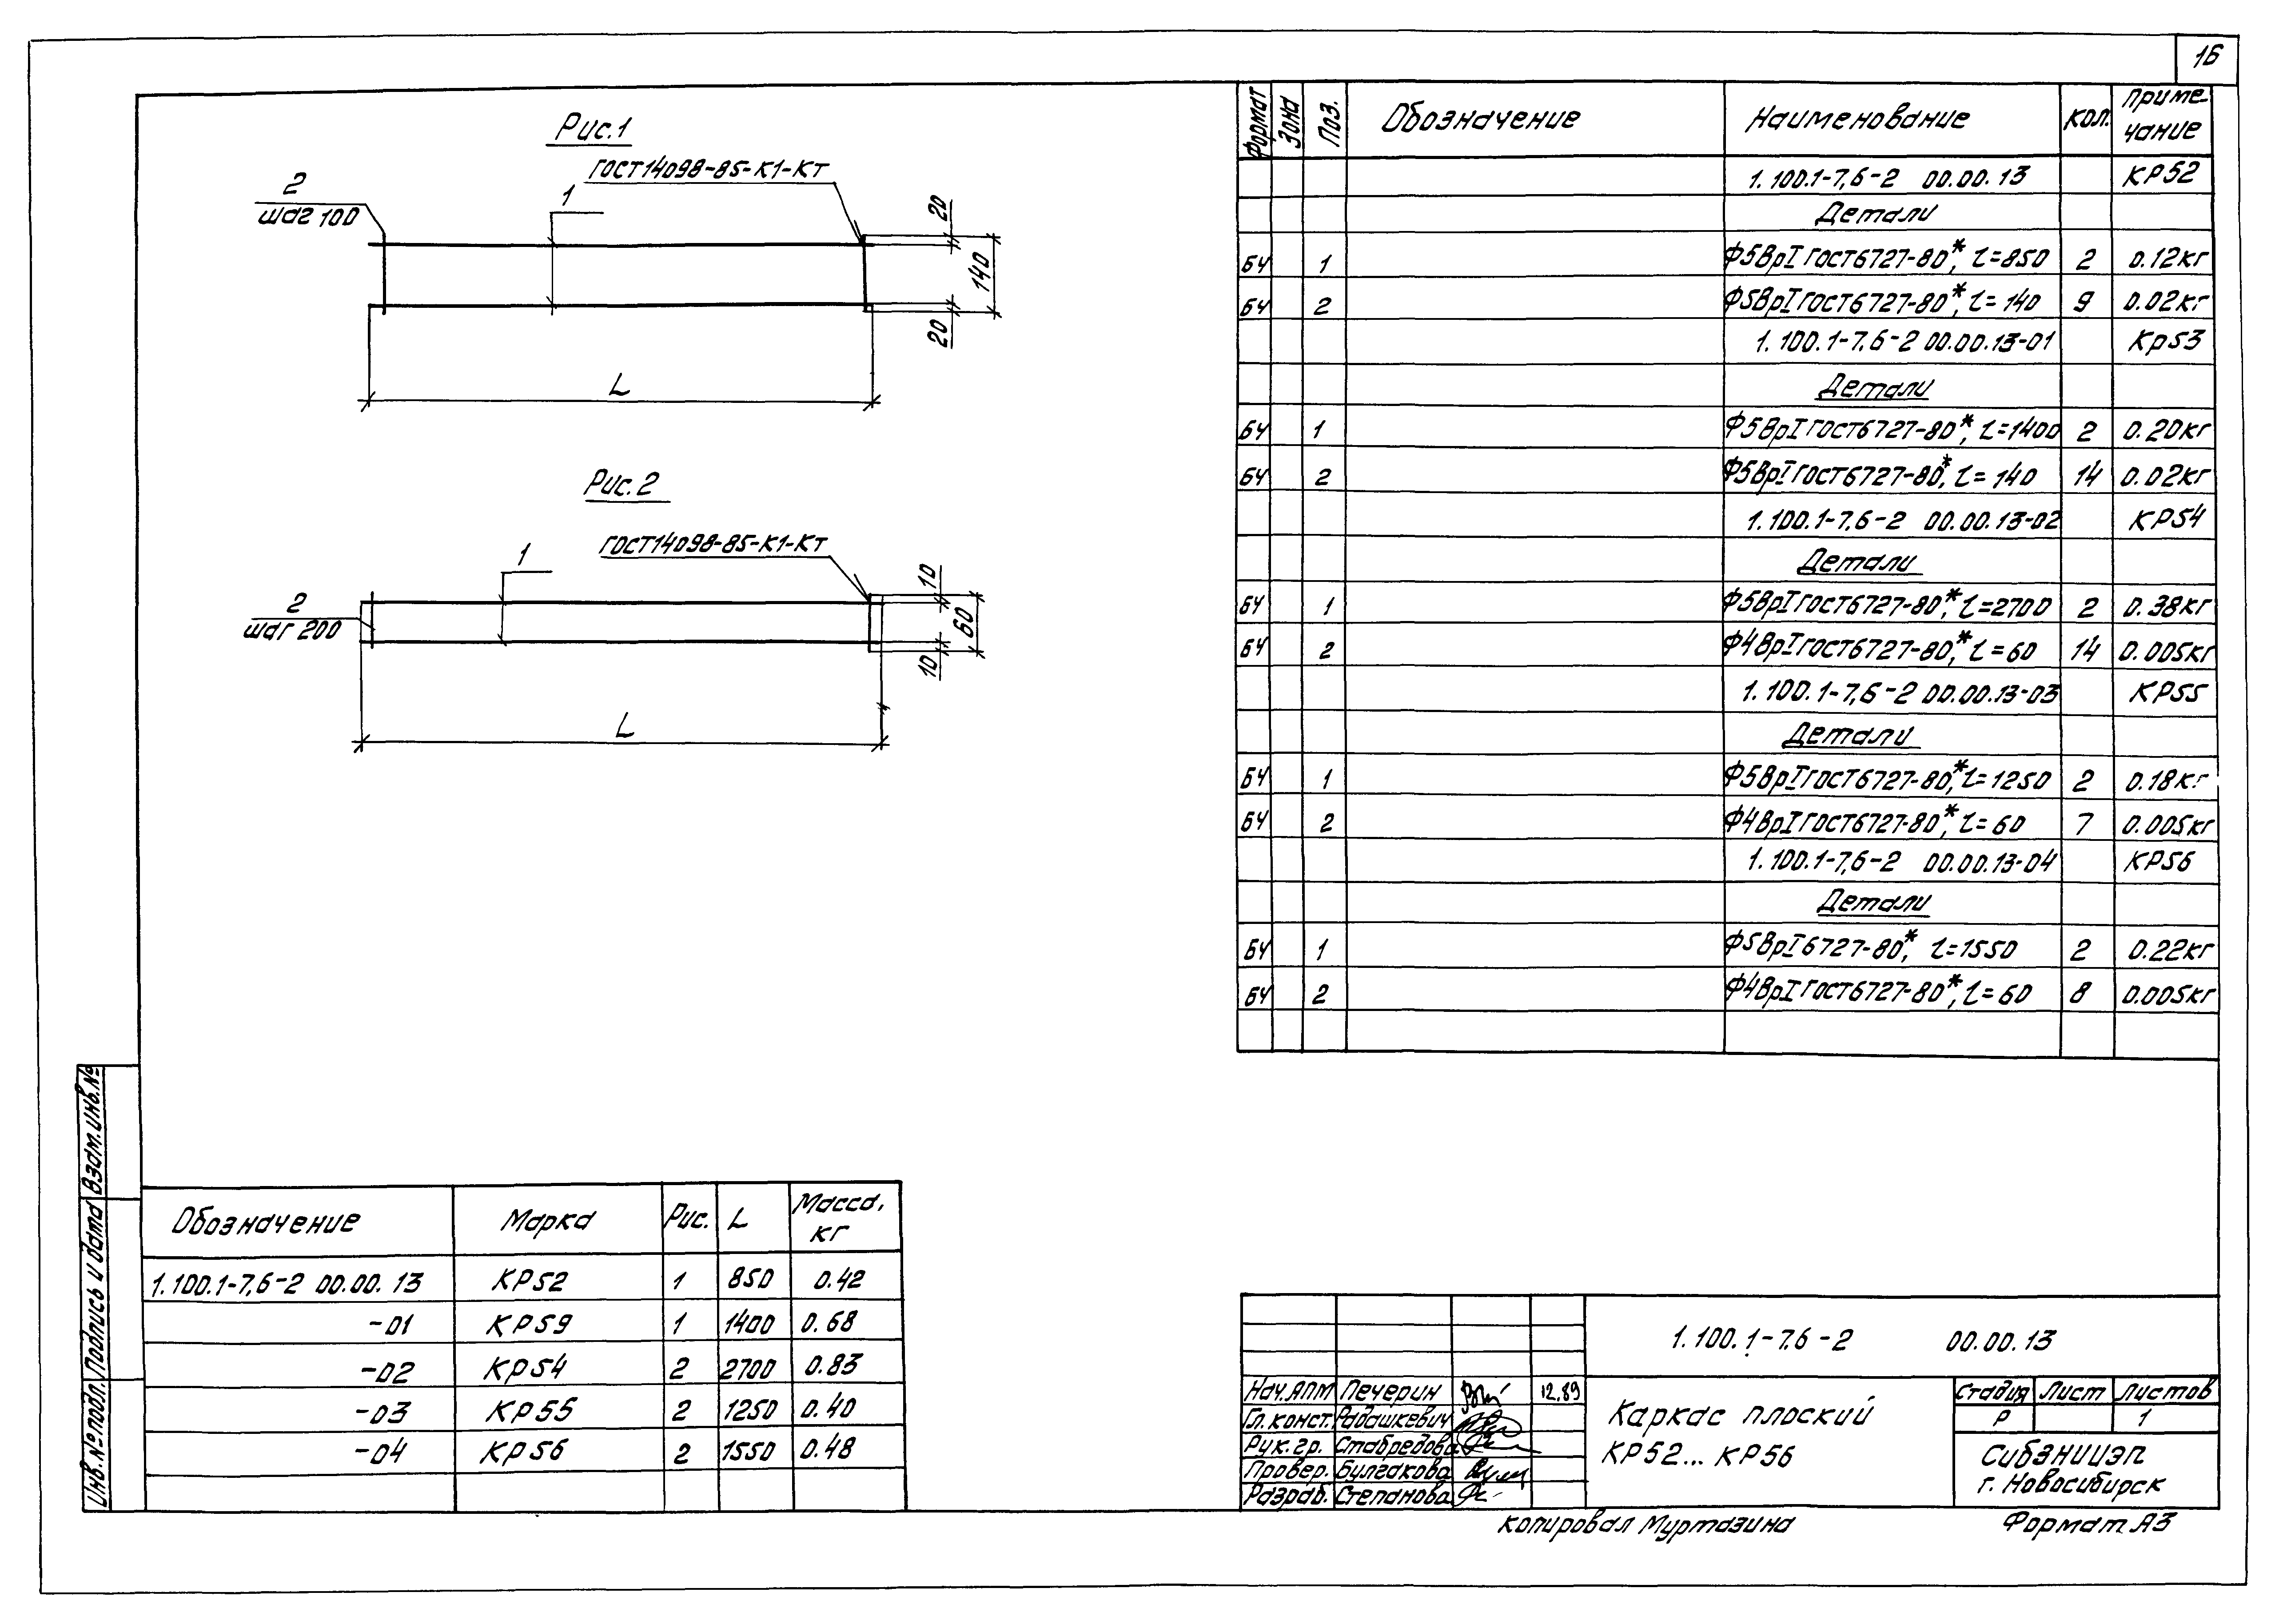 16
Рис.1
ГОСТ14098-85-К1-Кт
2
шаг 100
1
20
140
20
L
Рис.2
ГОСТ14098-85-К1-Кт
2
шаг 200
1
10
60
10
L
Формат Зона Поз. Обозначение Наименование Кол. Приме-
чание
1.100.1-7,6-2 00.00.13 КР52
Детали
БЧ 1 Ф5ВрI ГОСТ6727-80*, l=850 2 0.12кг
БЧ 2 Ф5ВрI ГОСТ6727-80*, l=140 9 0.02кг
1.100.1-7.6-2 00.00.13-01 Кр53
Детали
БЧ 1 Ф5ВрI ГОСТ6727-80*, l=1400 2 0.20кг
БЧ 2 Ф5ВрI ГОСТ6727-80*, l=140 14 0.02кг
1.100.1-7.6-2 00.00.13-02 КР54
Детали
БЧ 1 Ф5ВрI ГОСТ6727-80*, l=2700 2 0.38кг
БЧ 2 Ф4ВрI ГОСТ6727-80*, l=60 14 0.005кг
1.100.1-7,6-2 00.00.13-03 КР55
Детали
БЧ 1 Ф5ВрI ГОСТ6727-80*, l=1250 2 0.18кг
БЧ 2 Ф4ВрI ГОСТ6727-80*, l=60 7 0.005кг
1.100.1-7,6-2 00.00.13-04 КР56
Детали
БЧ 1 Ф5ВрI 6727-80*, l=1550 2 0.22кг
БЧ 2 Ф4ВрI ГОСТ6727-80*, l=60 8 0.005кг
Обозначение Марка Рис. L Масса,
кг
1.100.1-7,6-2 00.00.13 КР52 1 850 0.42
-01 КР59 1 1400 0.68
-02 КР54 2 2700 0.83
-03 КР55 2 1250 0.40
-04 КР56 2 1550 0.48
Взам.инв.№
Подпись и дата
Инв.№подл.
1.100.1-7.6-2 00.00.13
Нач.АПМ Печерин 12.89
Гл.конст. Радашкевич
Рук.гр. Стабредова
Провер. Булгакова
Разраб. Степанова
Каркас плоский
КР52...КР56
Стадия Лист Листов
Р 1
СибЗНИИЭП
г. Новосибирск
Копировал Муртазина Формат А3